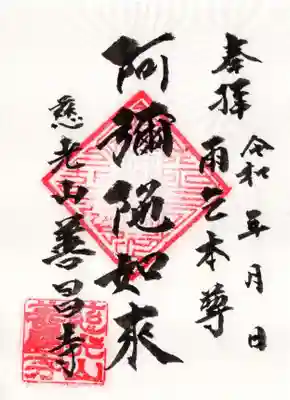 奉拝
令和 年 月 日
雨乞本尊
阿彌陀如來
慈光山善昌寺